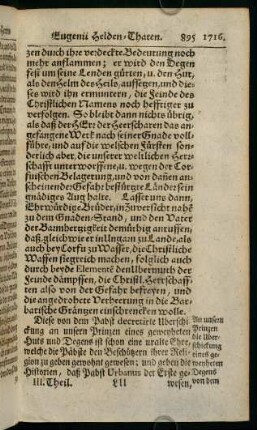 Eugenii Helden-Thaten. 895 1716.
zen durch ihre verdeckte Bedeutung noch
mehr anflammen; er wird den Degen
fest um seine Lenden gürten, u. den Hut,
als den Helm des Heils, aufsetzen, und die-
ses wird ihn ermuntern, die Feinde des
Christlichen Namens noch hefftiger zu
verfolgen. So bleibt dann nichts übrig,
als daß der HErr der Heerscharen das an-
gefangene Werk nach seiner Gnade voll-
führe, und auf die welschen Fürsten son-
derlich aber die unserer weltlichen Herr-
schafft unterworffene, u. wegen der Cor-
fuischen Belagerung, und von dañen an-
scheinender Gefahr bestürzte Länder sein
gnädiges Aug halte. Lasset uns dann,
Ehrwürdige Brüder, in Zuversicht nahē
zu dem Gnaden-Stand, und den Vater
der Barmhertzigkeit demüthig anruffen,
daß, gleichwie er in Ungarn zu Lande, als
auch bey Corfu zu Wasser, die Christliche
Waffen siegreich machen, folglich auch
durch beyde Elementē den Ubermuth der
Feinde dämpffen, die Christl. Herrschaff-
ten also von der Gefahr befreyen, und
die angedrohete Verheerung in die Bar-
barische Gräntzen einschrencken wolle.
Diese von dem Pabst decretirte Uberschi-
ckung an unsern Prinzen eines geweyheten
Huts und Degens ist schon eine uralte Ehre,
welche die Päbste den Beschützern ihrer Reli-
gion zu geben gewohnt gewesen; und geben die
Historien, daß Pabst Urbanus der Erste ge-
III. Theil. Lll wesen,
An unsern
Prinzen
die Uber-
schickung
eines ge-
weyheten
Degens
von dem